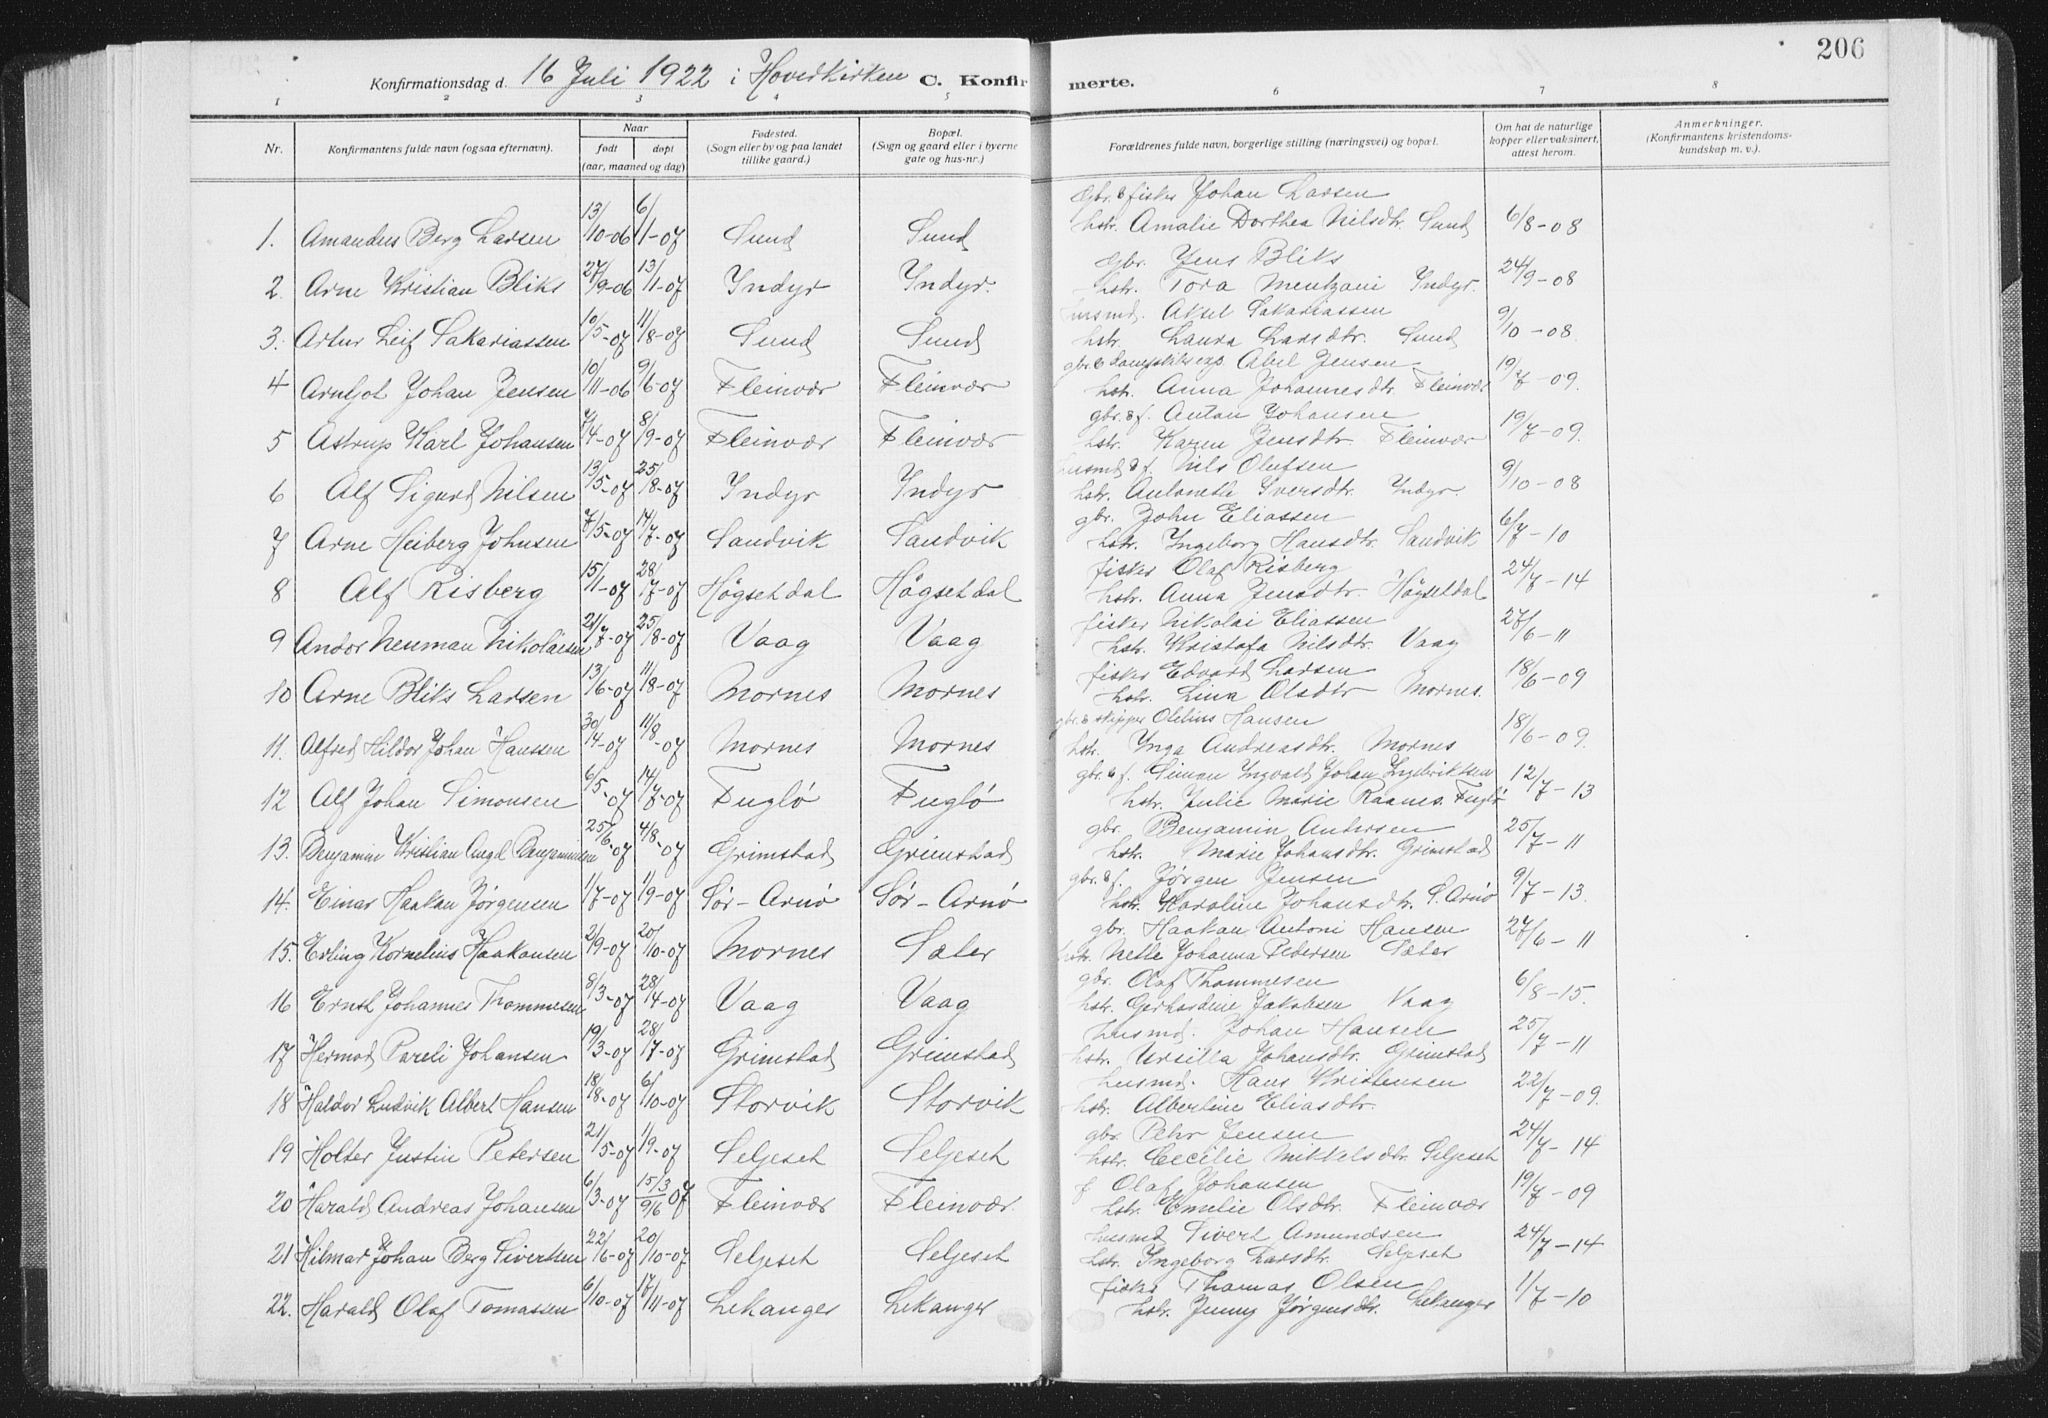 206
Konfirmationsdag d. 16 Juli 1922 i Hovedkirken C. Konfirmerte.
1 2 3 4 5 6 7 8
Nr. Konfirmantens fulde navn (ogsaa efternavn). Naar født døpt (aar, maaned og dag) Fødested. (Sogn eller by og paa landet tillike gaard.) Bopæl. (Sogn og gaard eller i byerne gate og hus-nr.) Forældrenes fulde navn, borgerlige stilling (næringsvei) og bopæl. Om hat de naturlige kopper eller vaksinert, attest herom. Anmerkninger. (Konfirmantens kristendomskundskap m. v.).
gbr. & fisker Johan Larsen
1. Amandus Berg Larsen 13/10-06 6/1-07 Sund Sund hstr. Amalie Dorthea Nilsdtr. Sund 6/8-08
gbr. Jens Bliks
2. Arne Kristian Bliks 27/9-06 13/1-07 Indyr Indyr. hstr. Tora Mentzoni Indyr. 24/9-08
husmd. Aksel Sakariassen
3. Artur Leif Sakariassen 10/5-07 11/8-07 Sund Sund hstr. Laura Larsdtr. Sund 9/10-08
gbr. & dampskibsexp. Abel Jensen
4 Arntjot Johan Jensen 10/11-06 9/6-07 Fleinvær Fleinvær hstr. Anna Johannesdtr. Fleinvær 19/7-09.
gbr. & f. Anton Johansen
5 Astrup Karl Johansen 7/4-07 8/9-07 Fleinvær Fleinvær hstr. Karen Jensdtr. Fleinvær 19/7-09.
husmd & f. Nils Olufsen
6 Alf Sigurd Nilsen 13/5-07 25/8-07 Indyr Indyr hstr. Antonette Iversdtr. Indyr. 9/10-08
gbr. John Eliassen
7 Arne Heiberg Johnsen 7/5-07 14/7-07 Sandvik Sandvik hstr. Ingeborg Hansdtr. Sandvik 6/7-10
fisker Olaf Risberg
8 Alf Risberg 15/1-07 28/7-07 Högsetdal Högsetdal hstr. Anna Jensdtr. Högsetdal 24/7-14
fisker Nikolai Eliassen
9 Andor Neuman Nikolaisen 21/7-07 25/8-07 Vaag Vaag hstr. Kristofa Nilsdtr. Vaag 27/6-11
fisker Edvard Larsen
10 Arne Bliks Larsen 13/6-07 11/8-07 Mornes Mornes hstr. Lina Olsdtr Mornes. 18/6-09
gbr. & skipper Olelius Hansen
11. Alfred Hildor Johan Hanssen 30/4-07 11/8-07 Mornes Mornes hstr. Inga Andreasdtr. Mornes 18/6-09.
gbr. & f. Simon Ingvald Johan Ingebriktsen
12 Alf Johan Simonsen 6/5-07 14/7-07 Fuglø Fuglø hstr. Julie Marie Raanes. Fuglø 12/7-13
gbr. Benjamin Antersen
13. Benjamin Kristian Angel Benjaminsen 25/6-07 4/8-07 Grimstad Grimstad hstr. Marie Johansdtr. Grimstad 25/7-11
gbr. & f. Jørgen Jensen
14. Einar Haakon Jørgensen 1/7-07 1/9-07 Sør-Arnø Sør-Arnø hstr. Karoline Johansdtr. S. Arnø 9/7-13.
gbr. Haakon Antoni Hansen
15. Erling Kornelius Haakonsen 2/9-07 20/10-07 Mornes Sæter hstr. Nelle Johanna Pedersen Sæter 27/6-11
gbr. Olaf Thommesen
16 Ernst Johannes Thommesen 8/3-07 28/4-07 Vaag Vaag hstr. Gerhardine Jakobsen Vaag 6/8-15.
husmd. Johan Hansen
17 Hermod Pareli Johansen 19/3-07 28/7-07 Grimstad Grimstad hstr. Ursilla Johansdtr. Grimstad 25/7-11
husmd. Hans Kristensen
18 Haldor Ludvik Albert Hansen 18/8-07 6/10-07 Storvik Storvik hstr. Albertine Eliasdtr. 22/7-09.
gbr. Peter Jensen
19 Holter Justin Petersen 21/5-07 1/9-07 Seljeset Seljeset hstr. Cecilie Mikkelsdtr. Seljeset 24/7-14
f Olaf Johansen
20 Harald Andreas Johansen 6/3-07 15/3 9/6 07 Fleinvær Fleinvær. hstr. Emelie Olsdtr. Fleinvær 19/7-09
husmd Sivert Amundsen
21 Hilmar Johan Berg Sivertsen 22/6-07 20/10-07 Seljeset Seljeset hstr. Ingeborg Larsdtr. Seljeset 24/7-14
fisker Thomas Olsen
22. Harald Olaf Tomassen 6/10-07 17/11-07 Lekanger Lekanger hstr. Jenny Jørgensdtr. Lekanger 1/7-10